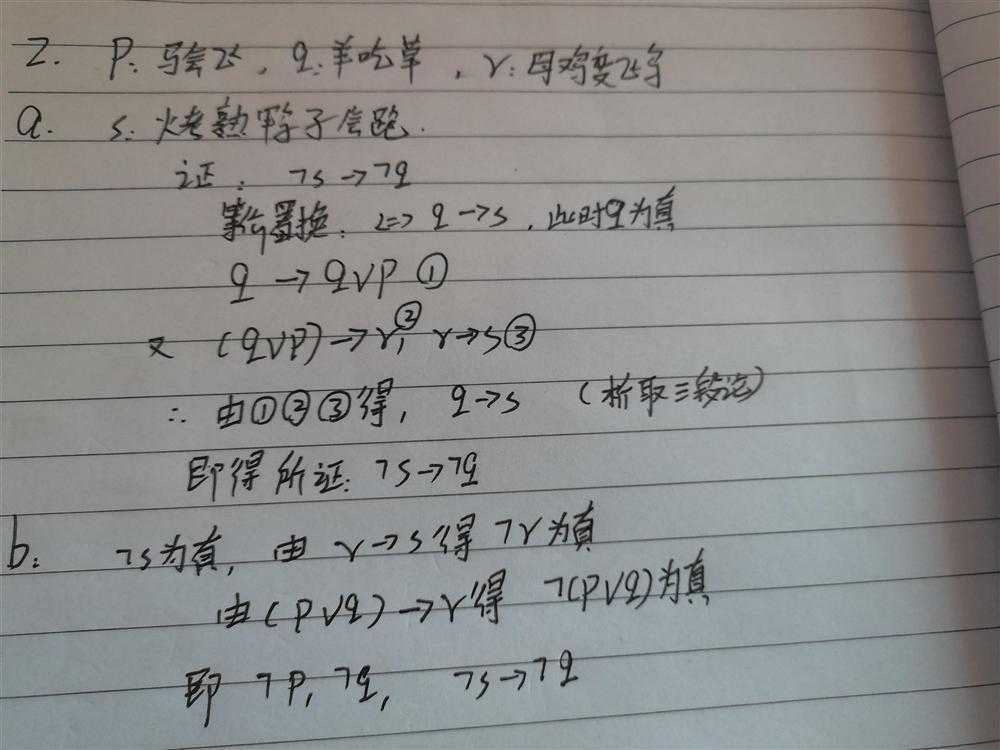 2. P: 马会飞, q: 羊吃草, r: 母鸡变飞鸟
a. s: 烤熟鸭子会跑.
证: ¬s→¬q
等价置换: <=> q→s, 此时q为真
q → q∨p ①
又 (q∨p)→r,② r→s③
∴ 由①②③得, q→s (析取三段论)
即得所证: ¬s→¬q
b: ¬s为真, 由 r→s得 ¬r为真
由(p∨q)→r得 ¬(p∨q)为真
即 ¬p, ¬q, ¬s→¬q